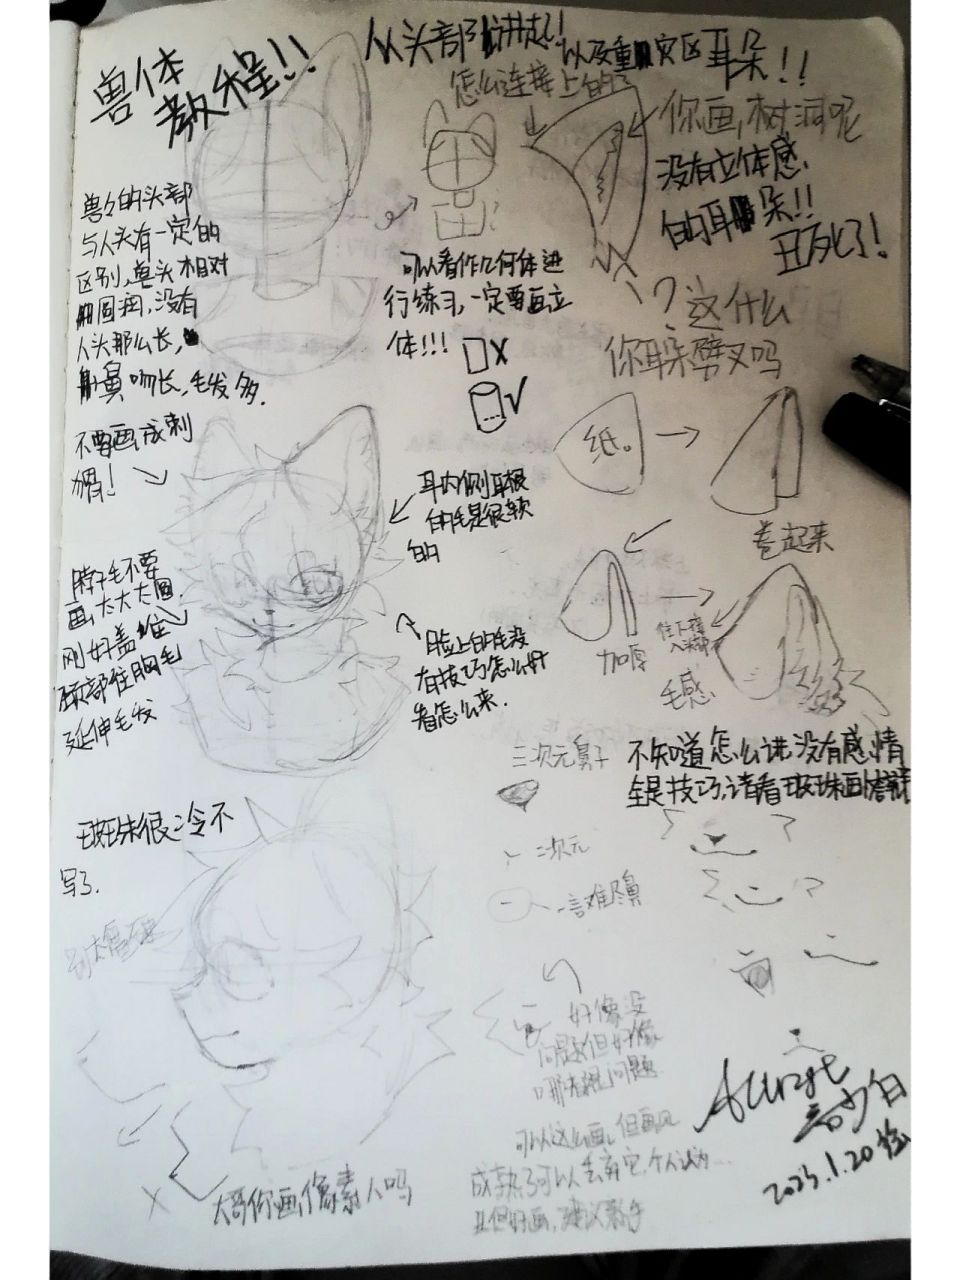 兽体
教程!!
从头部讲起!! 以及重灾区耳朵!!
怎么连接上的?
你画,树洞呢
没有立体感.
的耳朵!!
丑死了!
?这什么
你耳朵劈叉吗
兽兽的头部
与人头有一定的
区别,兽头相对
圆润,没有
人头那么长,
鼻吻长,毛发多.
可以看作几何体进
行练习,一定要画立
体!!!
X
√
不要画成刺
猬!
耳内侧耳根
的毛是很软
的
纸。
卷起来
加厚
毛感
脖子毛不要
画太大大圆.
刚好盖住
颈部往胸毛
延伸毛发
脸上的毛没
有技巧怎么好
看怎么来.
三次元鼻子
二次元
一言难尽鼻
不知道怎么讲没有感情
全是技巧,请看
很冷不
写了.
好像没
问题但好像
问题
可以这么画,但画风
成熟了可以丢弃它个人认为...
且但好画,建议新手
大哥你画像素人吗
X
2025.1.20绘